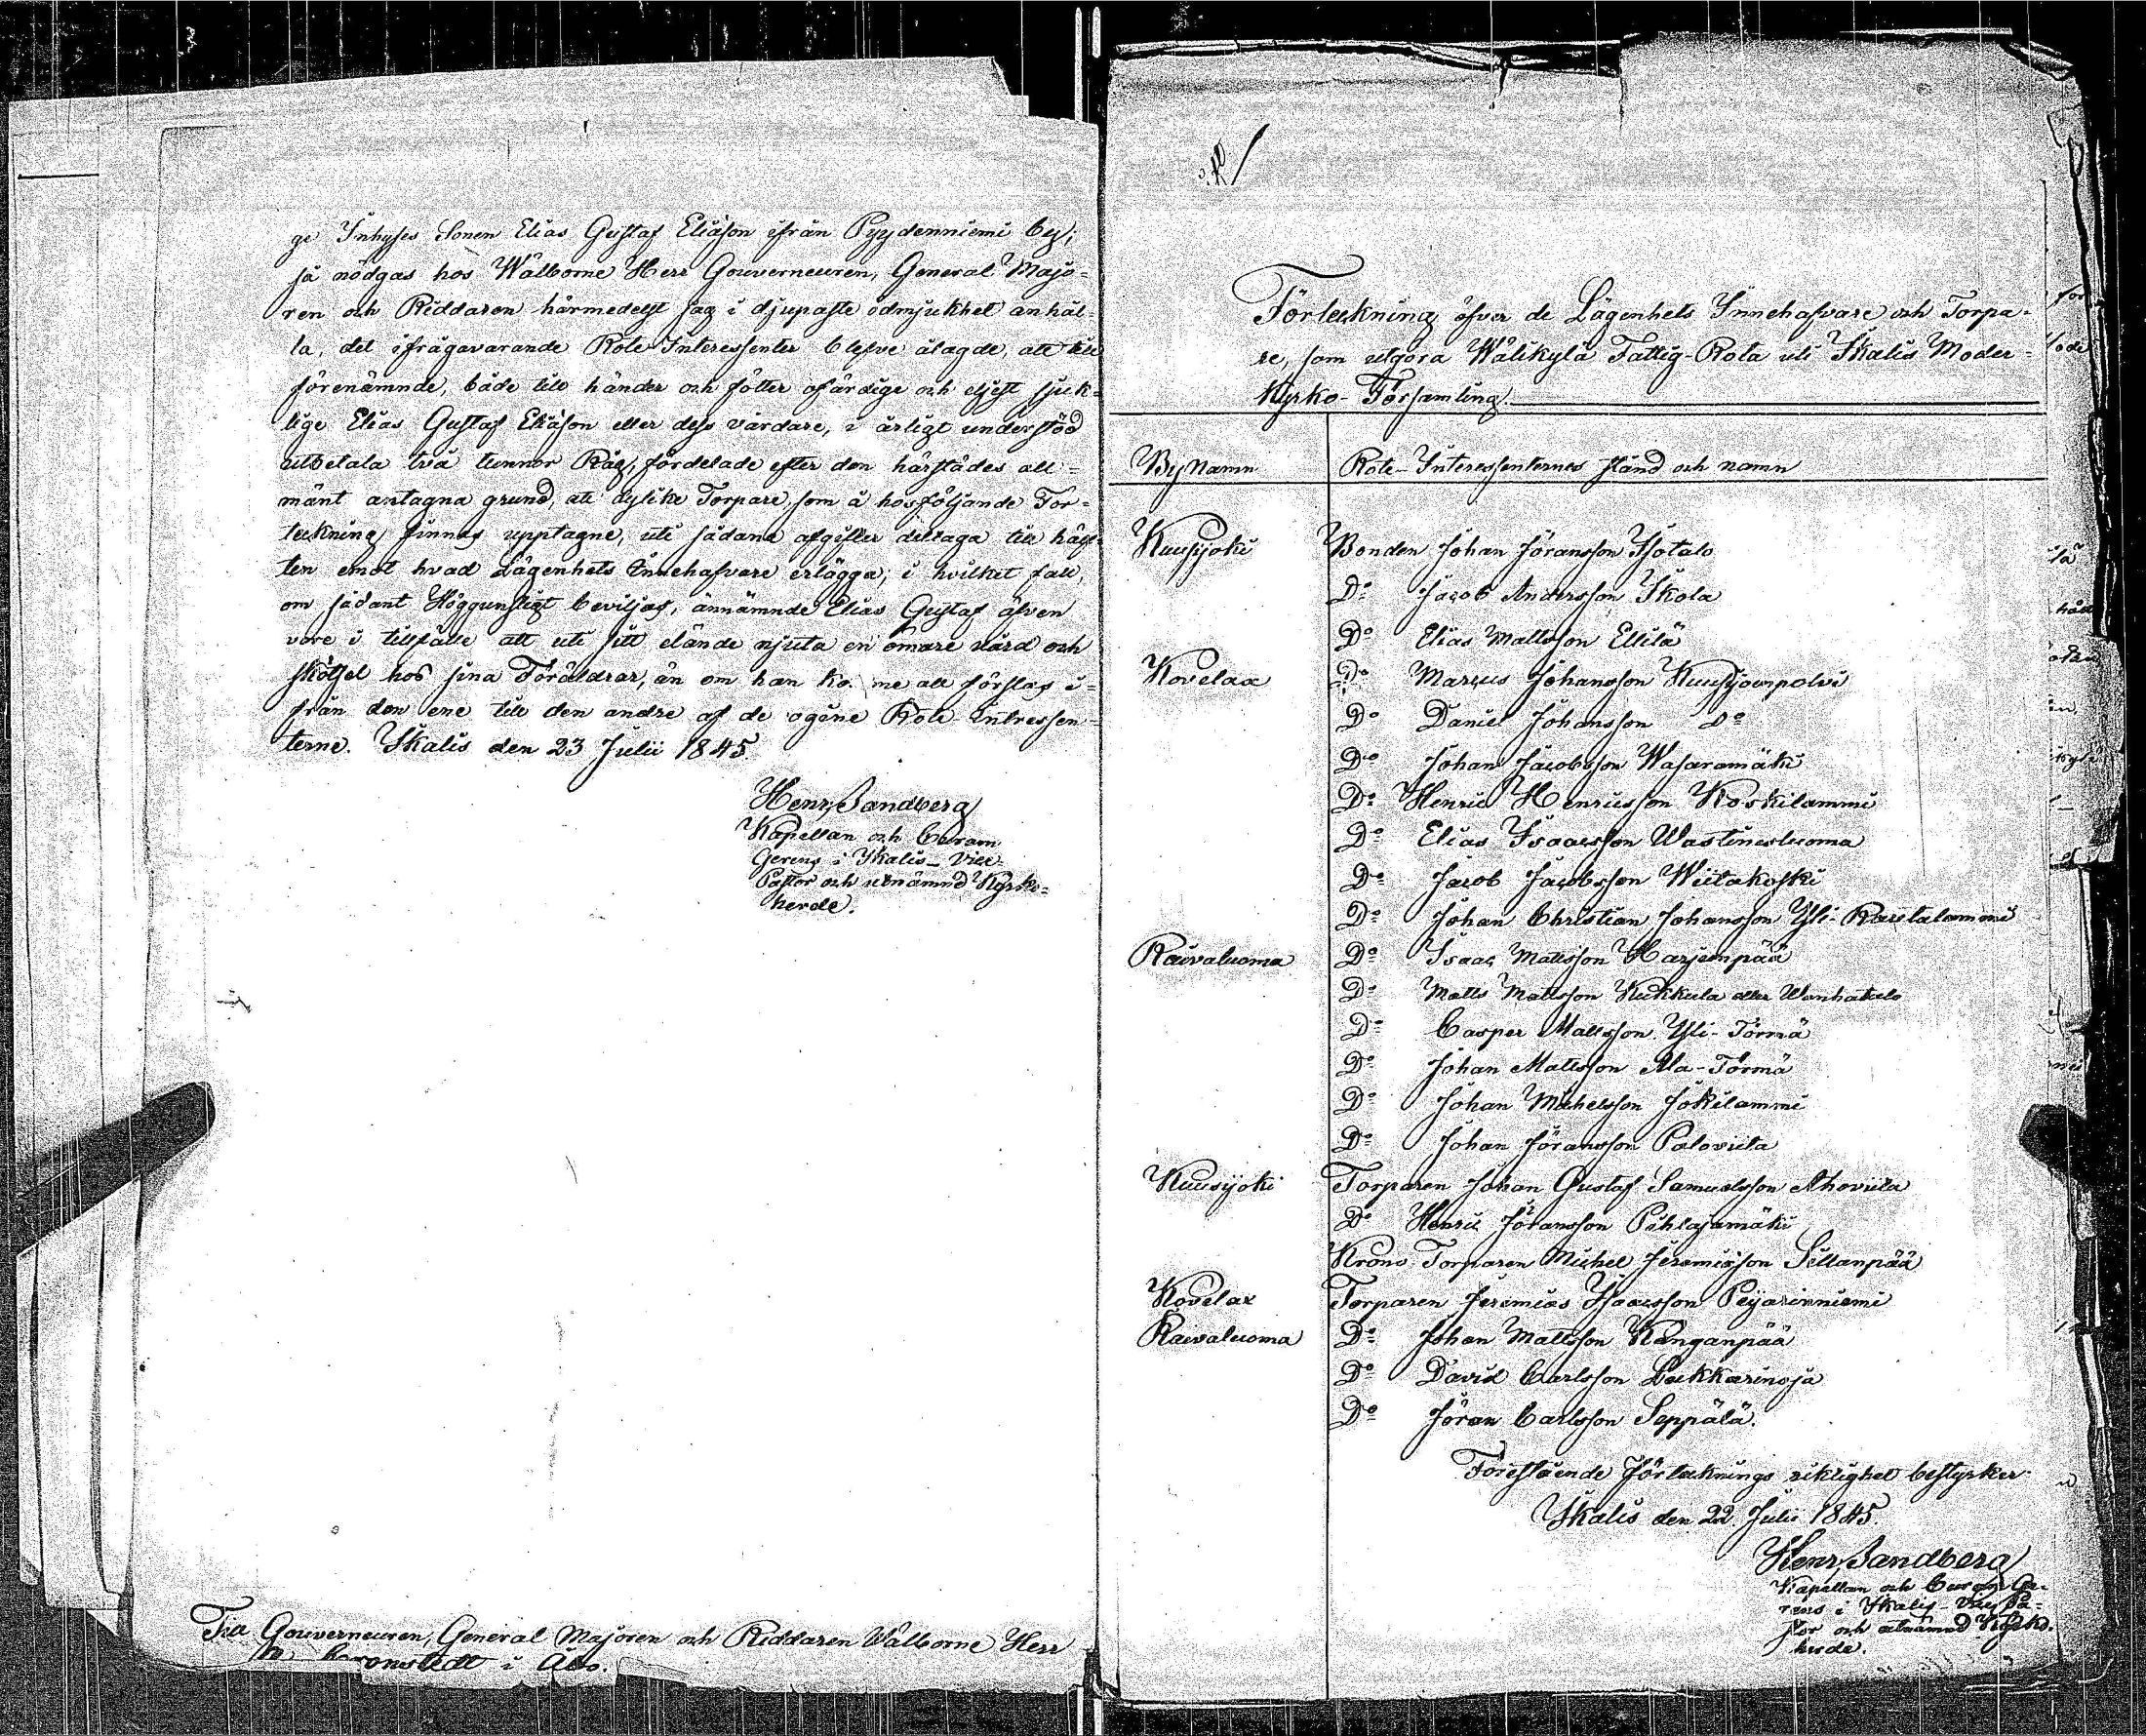 ge Inhyses Sonen Elias Gustaf Eliäson ifrån Pyydenniemi by;
så nödgas hos Wälborne Herr Gouverneuren, General Majo-
ren och Riddaren härmedelst jag i djupaste ödmjukhet anhål-
la, det ifrågavarande Rote Interessenter blefve ålagde, att till
förenämnde, både till händer och fötter ofärdige och eljest sjuk-
lige Elias Gustaf Eliäson eller dess vårdare, i årligt understöd
utbetala två tunnor Råg, fördelade efter den härstädes all-
mänt antagna grund, att dylike Torpare, som å hosföljande För-
teckning finnas upptagne, uti sådana afgifter deltaga till hälf-
ten emot hvad Lägenhets Innehafvare erlägga; i hvilket fall,
om sådant Höggunstigt beviljas, ännämnde Elias Gustaf äfven
vore i tillfälle att uti sitt elände njuta en ömare vård och
skötsel hos sina Föräldrar, än om han komme att förflas i-
från den ene till den andre af de ogine Rote-Intressen-
terne. Ikalis den 23 Julii 1845.
Henr. Sandberg
Kapellan och Curam
Gerens i Ikalis – Vice-
Pastor och utnämnd Kyrko-
herde.
Till Gouverneuren, General Majoren och Riddaren Wälborne Herr
Cronstedt i Åbo.
Förteckning öfver de Lägenhets Innehafvare och Torpa-
re, som utgöra Wälikylä Fattig-Rota uti Ikalis Moder-
Kyrko-Församling.
By Namn
Rote-Interessenternes stånd och namn
Kuusjoki Bonden Johan Jöransson Isotalo
Do Jacob Andersson Ikola
Do Elias Mattsson Ellilä
Kovelax Do Marcus Johansson Kuusijoenpolvi
Do Daniel Johansson Do
Do Johan Jacobsson Wasaramäki
Do Henric Henricsson Koskilammi
Do Elias Isaacsson Wastinesluoma
Do Jacob Jacobsson Wiitakoski
Do Johan Christian Johansson Yli-Rautalammi
Raivaluoma Do Isaac Mattsson Harjunpää
Do Matts Mattsson Kukkula eller Wanhatalo
Do Casper Mattsson Yli-Törmä
Do Johan Mattsson Ala-Törmä
Do Johan Michelsson Jokilammi
Do Johan Jöransson Paloviita
Kuusijoki Torparen Johan Gustaf Samuelsson Ahoviita
Do Henric Jöransson Pihlajamäki
Krono Torparen Michel Jeremiäson Sillanpää
Kovelax Torparen Jeremias Isaacsson Peijarinniemi
Raivaluoma Do Johan Mattsson Kanganpää
Do David Carlsson Lukkarinoja
Do Jöran Carlsson Seppälä.
Förestående Förtecknings riktighet bestyrker.
Ikalis den 22 Julii 1845.
Henr. Sandberg
Kapellan och Curam Ge-
rens i Ikalis – Vice Pa-
stor och utnämnd Kyrko-
herde.